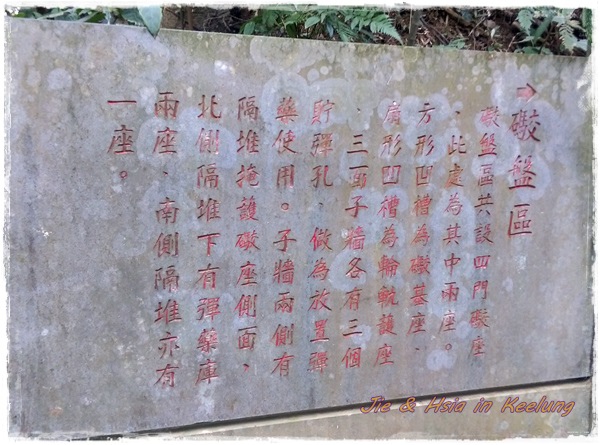 →礮盤區
礮盤區共設四門礮座
、此處為其中兩座。
方形凹槽為礮基座、
扇形凹槽為輪軌護座
、三面子牆各有三個
貯彈孔、做為放置彈
藥使用。子牆兩側有
隔堆掩護礮座側面、
北側隔堆下有彈藥庫
兩座、南側隔堆亦有
一座。
Jie & Hsia in Keelung